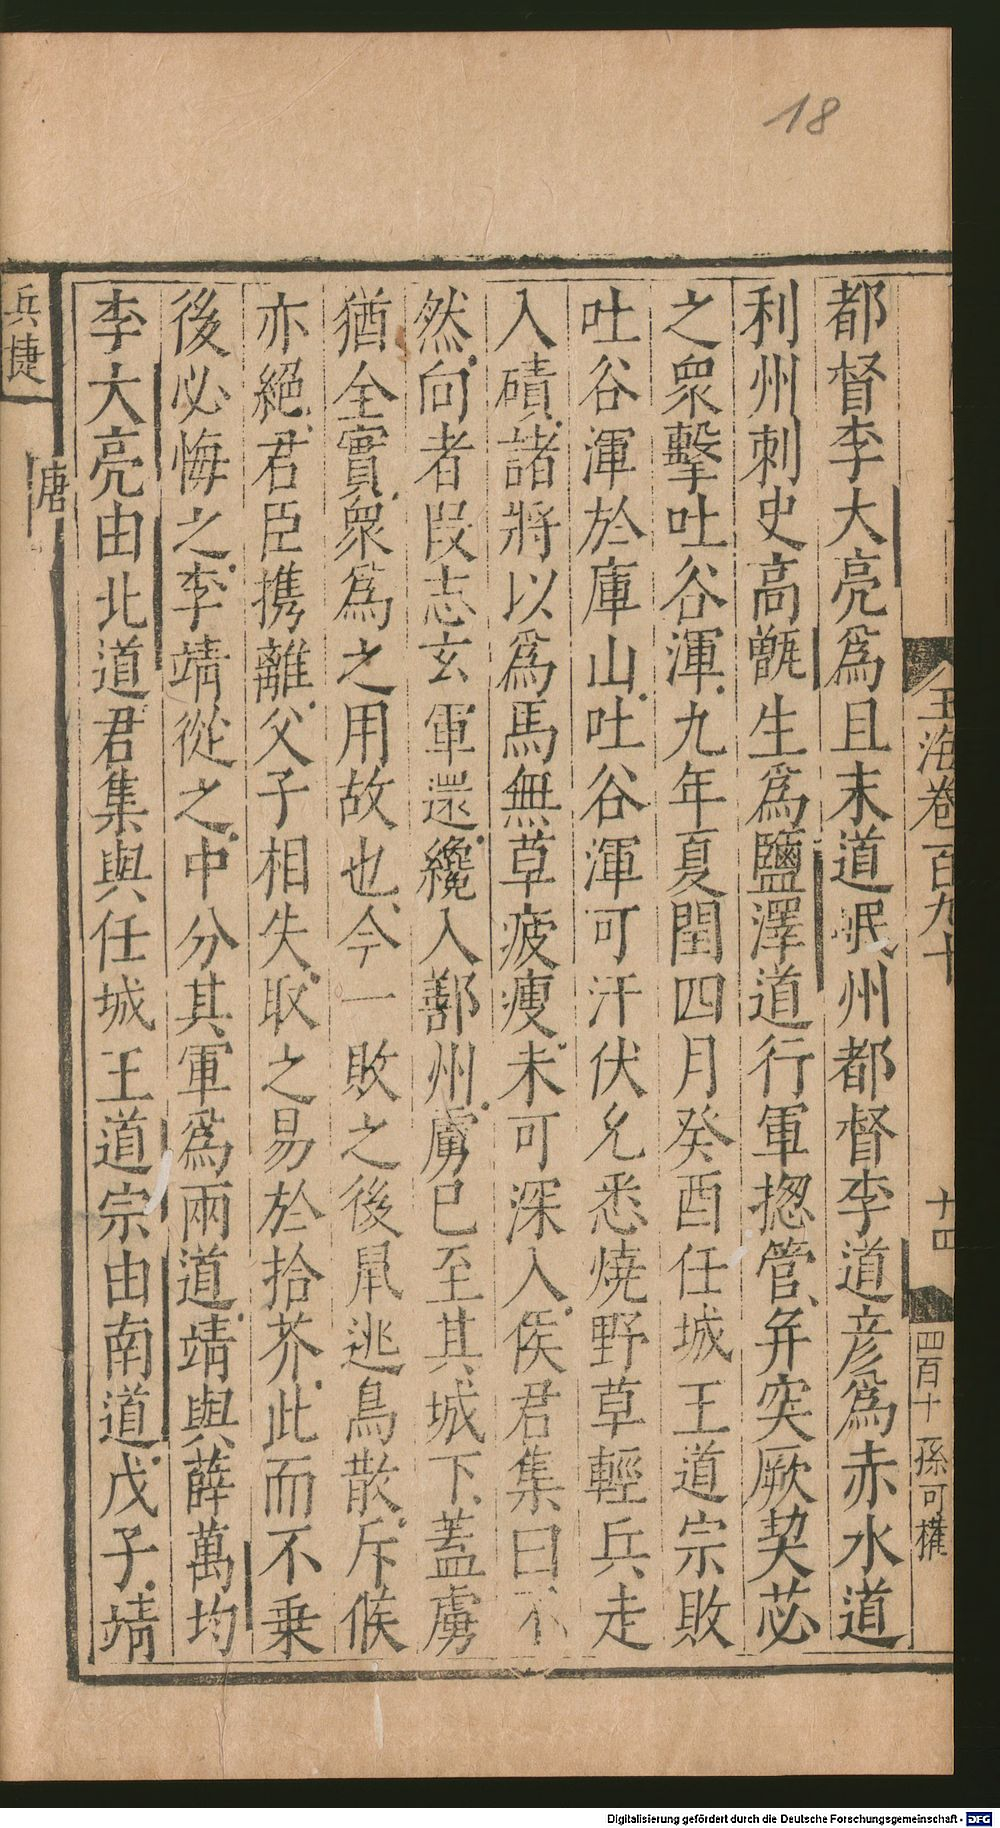 18
玉海卷一百九十
十四
四百十
孫可權
都督李大亮爲且末道岷州都督李道彦爲赤水道
利州刺史高甑生爲鹽澤道行軍揔管并突厥契苾
之衆擊吐谷渾九年夏閏四月癸酉任城王道宗敗
吐谷渾於庫山吐谷渾可汗伏允悉燒野草輕兵走
入磧諸將以爲馬無草疲瘦未可深入侯君集曰不
然向者段志玄軍還纔入鄯州虜已至其城下蓋虜
猶全實衆爲之用故也今一敗之後鼠逃鳥散斥候
亦絕君臣携離父子相失取之易於拾芥此而不乗
後必悔之李靖從之中分其軍爲兩道靖與薛萬均
李大亮由北道君集與任城王道宗由南道戊子靖
兵捷
唐
Digitalisierung gefördert durch die Deutsche Forschungsgemeinschaft - DFG